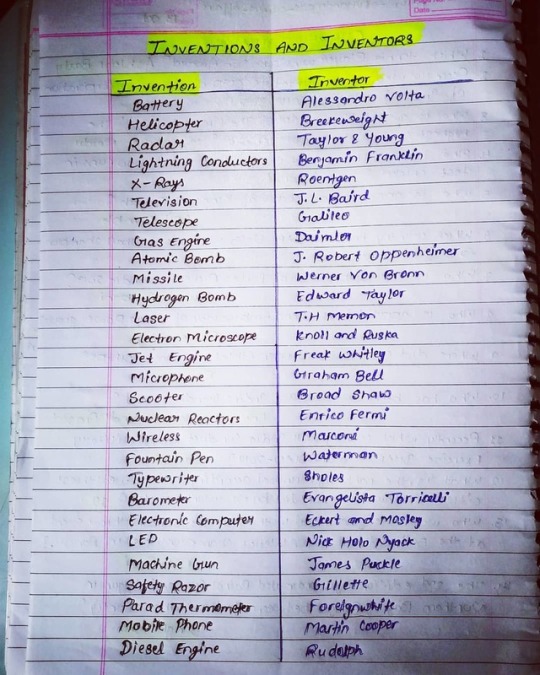 INVENTIONS AND INVENTORS
Invention Inventor
Battery Alessandro Volta
Helicopter Breekeweight
Radar Taylor & Young
Lightning Conductors Benjamin Franklin
X-Rays Roentgen
Television J.L. Baird
Telescope Galileo
Gas Engine Daimler
Atomic Bomb J. Robert Oppenheimer
Missile Werner Von Bronn
Hydrogen Bomb Edward Taylor
Laser T.H Memon
Electron Microscope Knoll and Ruska
Jet Engine Freak Whitley
Microphone Graham Bell
Scooter Broad Shaw
Nuclear Reactors Enrico Fermi
Wireless Marconi
Fountain Pen Waterman
Typewriter Sholes
Barometer Evangelista Torricelli
Electronic Computer Eckert and Mosley
LED Nick Holo Nyack
Machine Gun James Puckle
Safety Razor Gillette
Parad Thermometer Foreignwhite
Mobile Phone Martin Cooper
Diesel Engine Rudolph